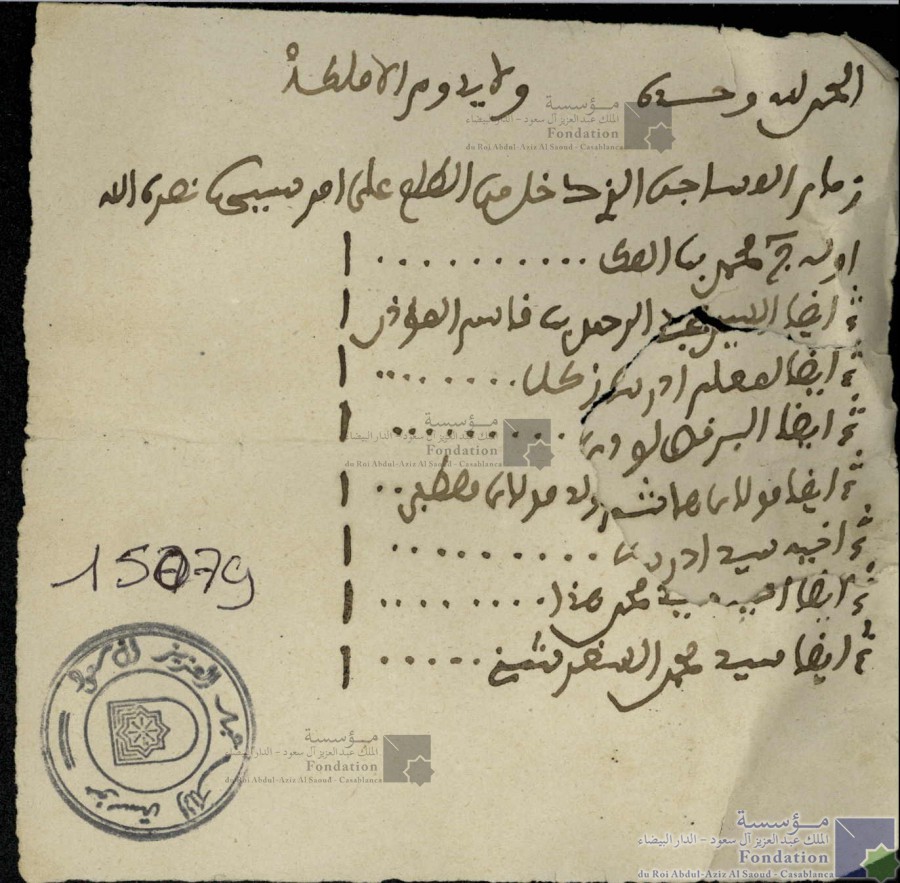 الحمد لله وحده ولا يدوم الا ملكه
زمام المساجين الذي دخل من الطلع على امر سيدي نصره الله
اوله ج محمد بن المكي .......... 1
ثم ايضا الامين عبد الرحمن بن قاسم 1
ثم ايضا لمعلم ادريس ........ 1
ثم ايضا .......... 1
ثم ايضا مولاي هاشم ولد مولاي .. 1
ثم اخيه سيد ادريس .......... 1
ثم ايضا اخيه سيد محمد هذا ......... 1
ثم ايضا سيد محمد ..... 1
15079
مؤسسة الملك عبد العزيز آل سعود
مؤسسة
الملك عبد العزيز آل سعود - الدار البيضاء
Fondation
du Roi Abdul-Aziz Al Saoud - Casablanca
مؤسسة
الملك عبد العزيز آل سعود - الدار البيضاء
Fondation
du Roi Abdul-Aziz Al Saoud - Casablanca
مؤسسة
الملك عبد العزيز آل سعود - الدار البيضاء
Fondation
du Roi Abdul-Aziz Al Saoud - Casablanca
مؤسسة
الملك عبد العزيز آل سعود - الدار البيضاء
Fondation
du Roi Abdul-Aziz Al Saoud - Casablanca